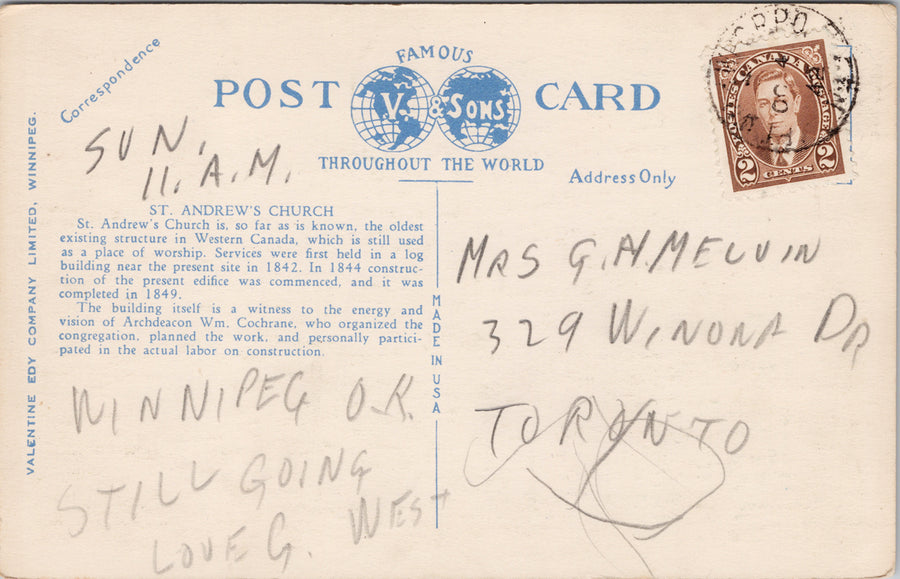 Correspondence
FAMOUS
POST CARD
V. & SONS
THROUGHOUT THE WORLD
Address Only
CANADA
POSTES POSTAGE
2 CENTS 2
SUN.
11. A.M.
ST. ANDREW'S CHURCH
St. Andrew's Church is, so far as is known, the oldest
existing structure in Western Canada, which is still used
as a place of worship. Services were first held in a log
building near the present site in 1842. In 1844 construc-
tion of the present edifice was commenced, and it was
completed in 1849.
The building itself is a witness to the energy and
vision of Archdeacon Wm. Cochrane, who organized the
congregation, planned the work, and personally partici-
pated in the actual labor on construction.
WINNIPEG O.K.
STILL GOING
WEST
LOVE G.
VALENTINE EDY COMPANY LIMITED, WINNIPEG.
MADE IN USA
MRS G.H. MELVIN
329 WINONA DR
TORONTO